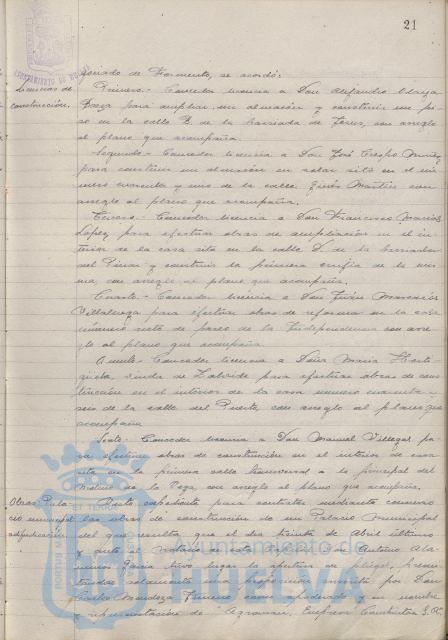 21
AYUNTAMIENTO DE HUELVA
Licencias de
construcción.
de Fomento, se acordó:
Primero.- Conceder licencia a Don Alejandro
para ampliar un almacén y construir un pi-
so en la calle B. de la barriada de con arreglo
al plano que acompaña.
Segundo.- Conceder licencia a Don José Crespo
para construir un almacén en solar sito en el nú-
mero cuarenta y uno de la calle Ginés Martín con
arreglo al plano que acompaña.
Tercero.- Conceder licencia a Don Francisco Macías
López para efectuar obras de ampliación en el in-
terior de la casa sita en la calle D. de la barriada
del Pinar y construir la primera crujía de la mis-
ma con arreglo al plano que acompaña.
Cuarto.- Conceder licencia a Don
para efectuar obras de reforma en la casa
número siete de paseo de la Independencia con arre-
glo al plano que acompaña.
Quinto.- Conceder licencia a Doña María
viuda de para efectuar obras de cons-
trucción en el interior de la casa número cuarenta y
seis de la calle del Puerto, con arreglo al plano que
acompaña.
Sexto.- Conceder licencia a Don Manuel Villegas pa-
ra efectuar obras de construcción en el interior de casa
sita en la primera calle transversal a la principal del
Molino de la Vega con arreglo al plano que acompaña.
Obras Pala-
cio municipal
adjudicación
Visto expediente para contratar mediante concurso
las obras de construcción de un Palacio Municipal
del que resulta que el día treinta de Abril último
y ante el Notario de esta capital Don Antonio
García tuvo lugar la apertura de pliegos, presen-
tándose solamente una proposición suscrita por Don
Carlos Mendoza Gimeno como apoderado y en nombre
y representación de "Agroman, Empresa Constructora S.A.
Ayuntamiento de
HUELVA